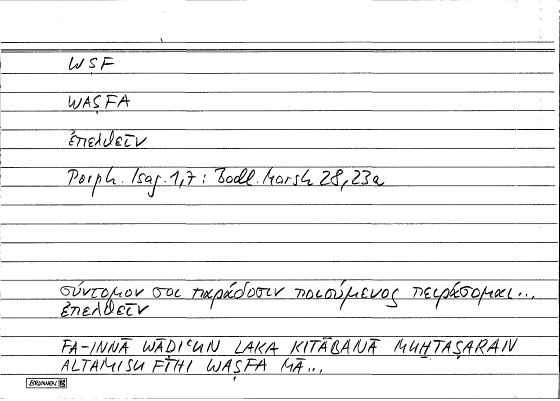 WṢF
WAṢFA
ἐπελθεῖν
Porph. Isag. 1,7: Bodl. Marsh 28, 23a
σύντομόν σοι παράδοσιν ποιούμενος πειράσομαι...
ἐπελθεῖν
FA-INNĀ WĀDIʿUN LAKA KITĀBANĀ MUḪTAṢARAN
ALTAMISU FĪHI WAṢFA MĀ...
BRUNNEN